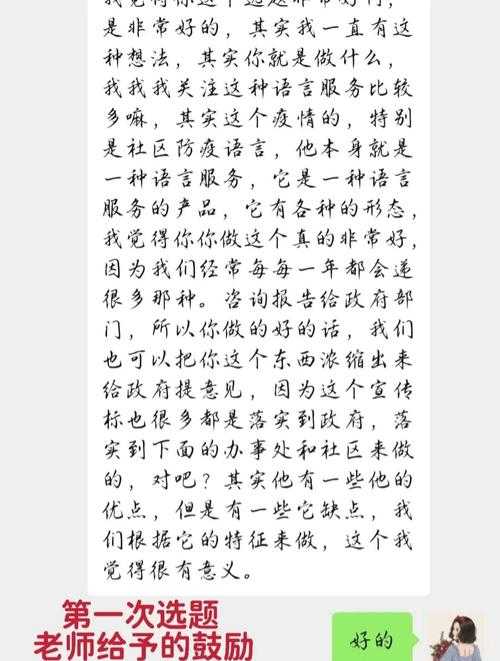 我觉得你这个选题非常好啊，
是非常好的，其实我一直有这
种想法，其实你就是做什么，
我我我关注这种语言服务比较
多嘛，其实这个疫情的，特别
是社区防疫语言，他本身就是
一种语言服务，它是一种语言
服务的产品，它有各种的形态，
我觉得你你做这个真的非常好，
因为我们经常每每一年都会递
很多那种。咨询报告给政府部
门，所以你做的好的话，我们
也可以把你这个东西浓缩出来
给政府提意见，因为这个宣传
标也很多都是落实到政府，落
实到下面的办事处和社区来做
的，对吧？其实他有一些他的
优点，但是有一些它缺点，我
们根据它的特征来做，这个我
觉得很有意义。
第一次选题
老师给予的鼓励
好的